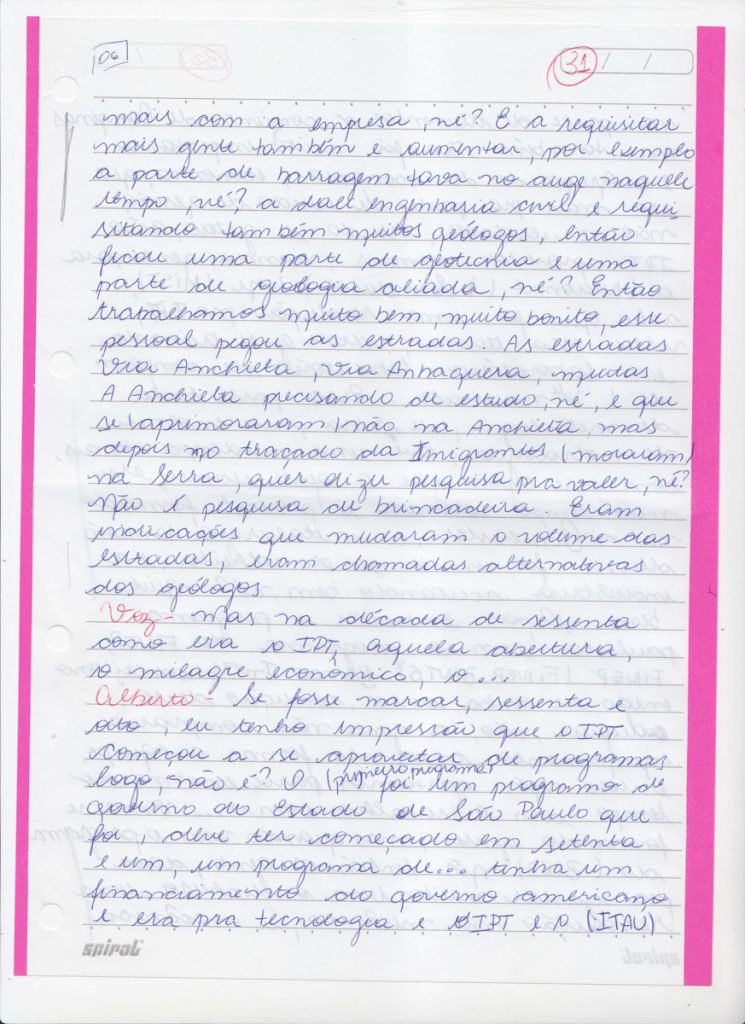 06
31 / /
mais com a empresa, né? E a requisitar
mais gente também e aumentar, por exemplo
a parte de barragem tava no auge naquele
tempo, né? a dali engenharia civil e requi-
sitando também muitos geólogos, então
ficou uma parte de geotecnia e uma
parte de geologia aliada, né? Então
trabalhamos muito bem, muito bonito, esse
pessoal pegou as estradas. As estradas
Via Anchieta, Via Anhaguera, muitas
A Anchieta precisando de estudo, né, e que
se (aprimoraram) não na Anchieta, mas
depois no traçado da Imigrantes (moraram)
na Serra, quer dizer pesquisa pra valer, né?
Não é pesquisa de brincadeira. Eram
indicações que mudaram o volume das
estradas, eram chamadas alternativas
dos geólogos
Voz - Mas na década de sessenta
como era o IPT, aquela abertura,
o milagre econômico, o...
Alberto - Se fosse marcar, sessenta e
oito, eu tenho impressão que o IPT
começou a se aproveitar de programas
logo, não é? O (primeiro programa?) foi um programa de
governo do Estado de São Paulo que
foi, deve ter começado em setenta
e um, um programa de... tinha um
financiamento do governo americano
e era pra tecnologia e o IPT e o (ITAÚ)
spiral